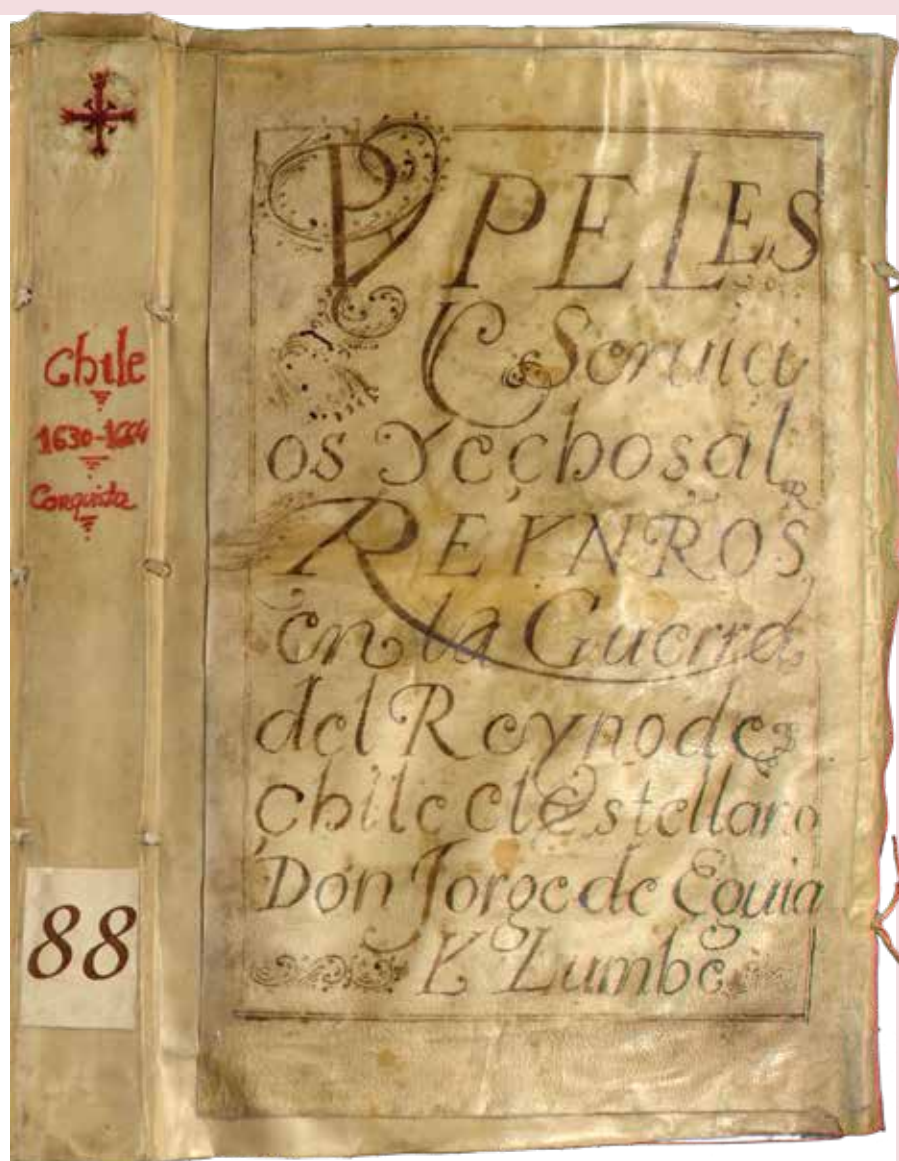 Chile
1630-1664
Conquista
88
PAPELES
Y Seruici
os Yechos al
REY N R OS
en la Guerra
del Reyno de
chile el estellaro
Don Jorge de Eguia
Y Lumbe